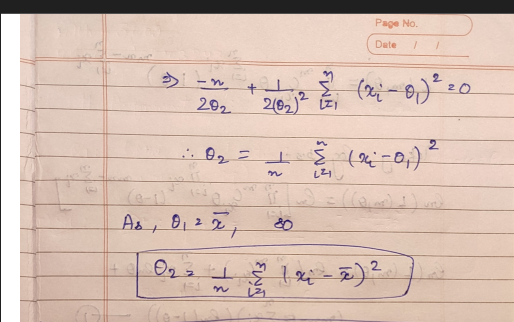 Page No.
Date / /
⇒ -n/2θ₂ + 1/2(θ₂)² Σᵢ₌₁ⁿ (xᵢ - θ₁)² = 0
∴ θ₂ = 1/n Σᵢ₌₁ⁿ (xᵢ - θ₁)²
As, θ₁ = x̄, so
θ₂ = 1/n Σᵢ₌₁ⁿ (xᵢ - x̄)²